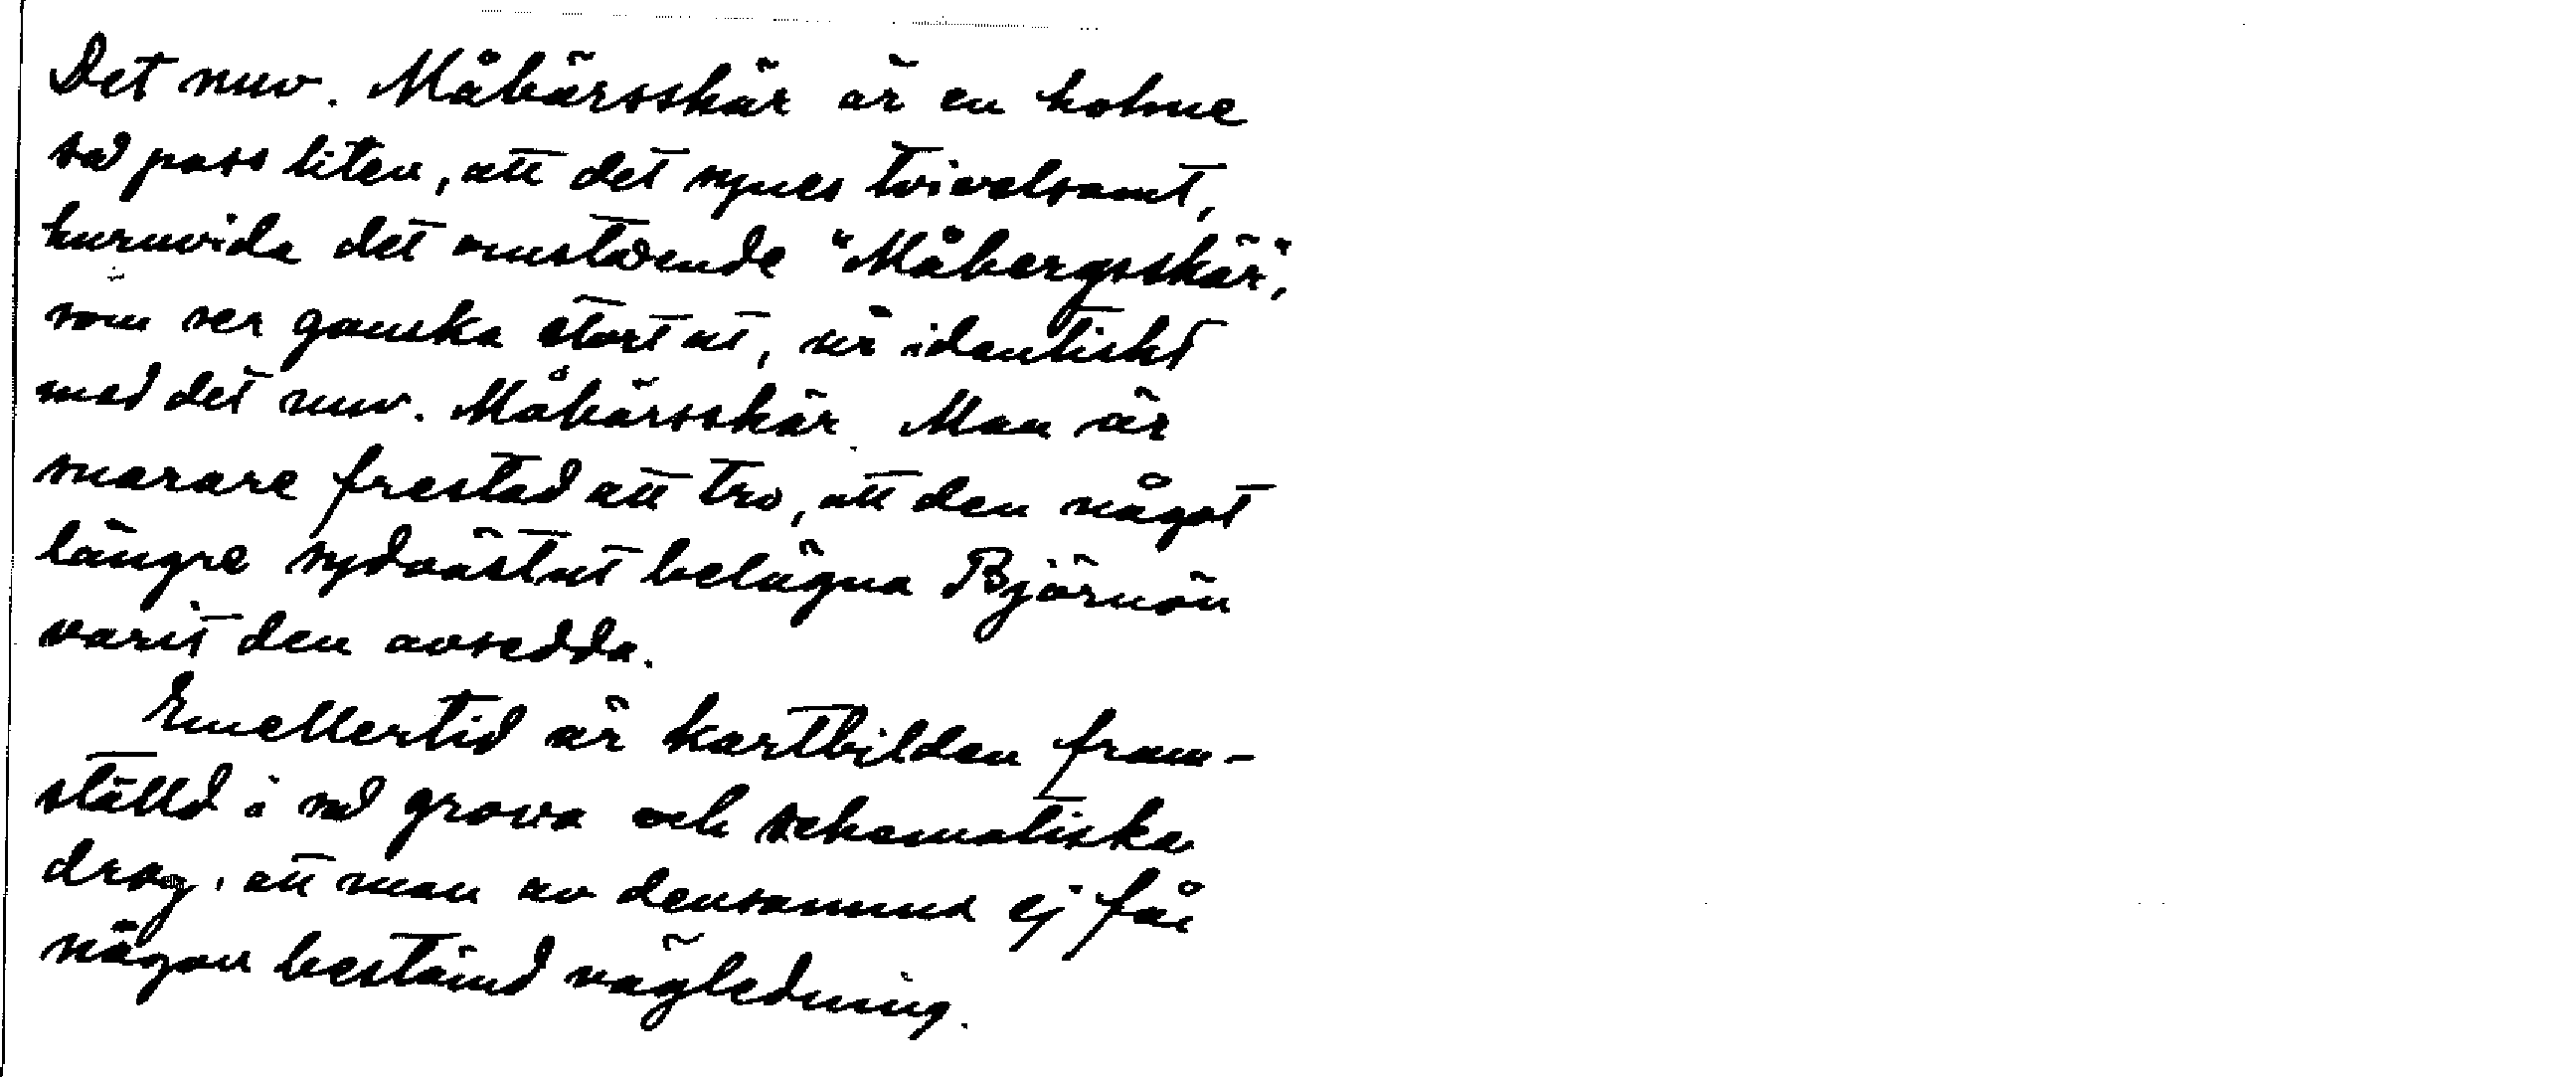 Det nuv. Måbärsskär är en holme
så pass liten, att det synes tvivelsamt,
huruvida det omstående "Måbergsskär",
som ser ganska stort ut, är identiskt
med det nuv. Måbärsskär. Man är
snarare frestad att tro, att den något
längre sydvästut belägna Björnön
varit den avsedda.
Emellertid är kartbilden fram-
ställd i så grova och schematiska
drag, att man av densamma ej får
någon bestämd vägledning.